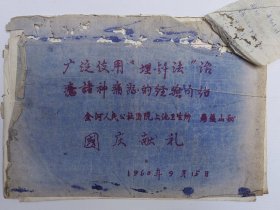 广泛使用“埋针法”治
神痛症的经验介绍
金河人民公社医院上池卫生所
国庆献礼
1960年9月15日